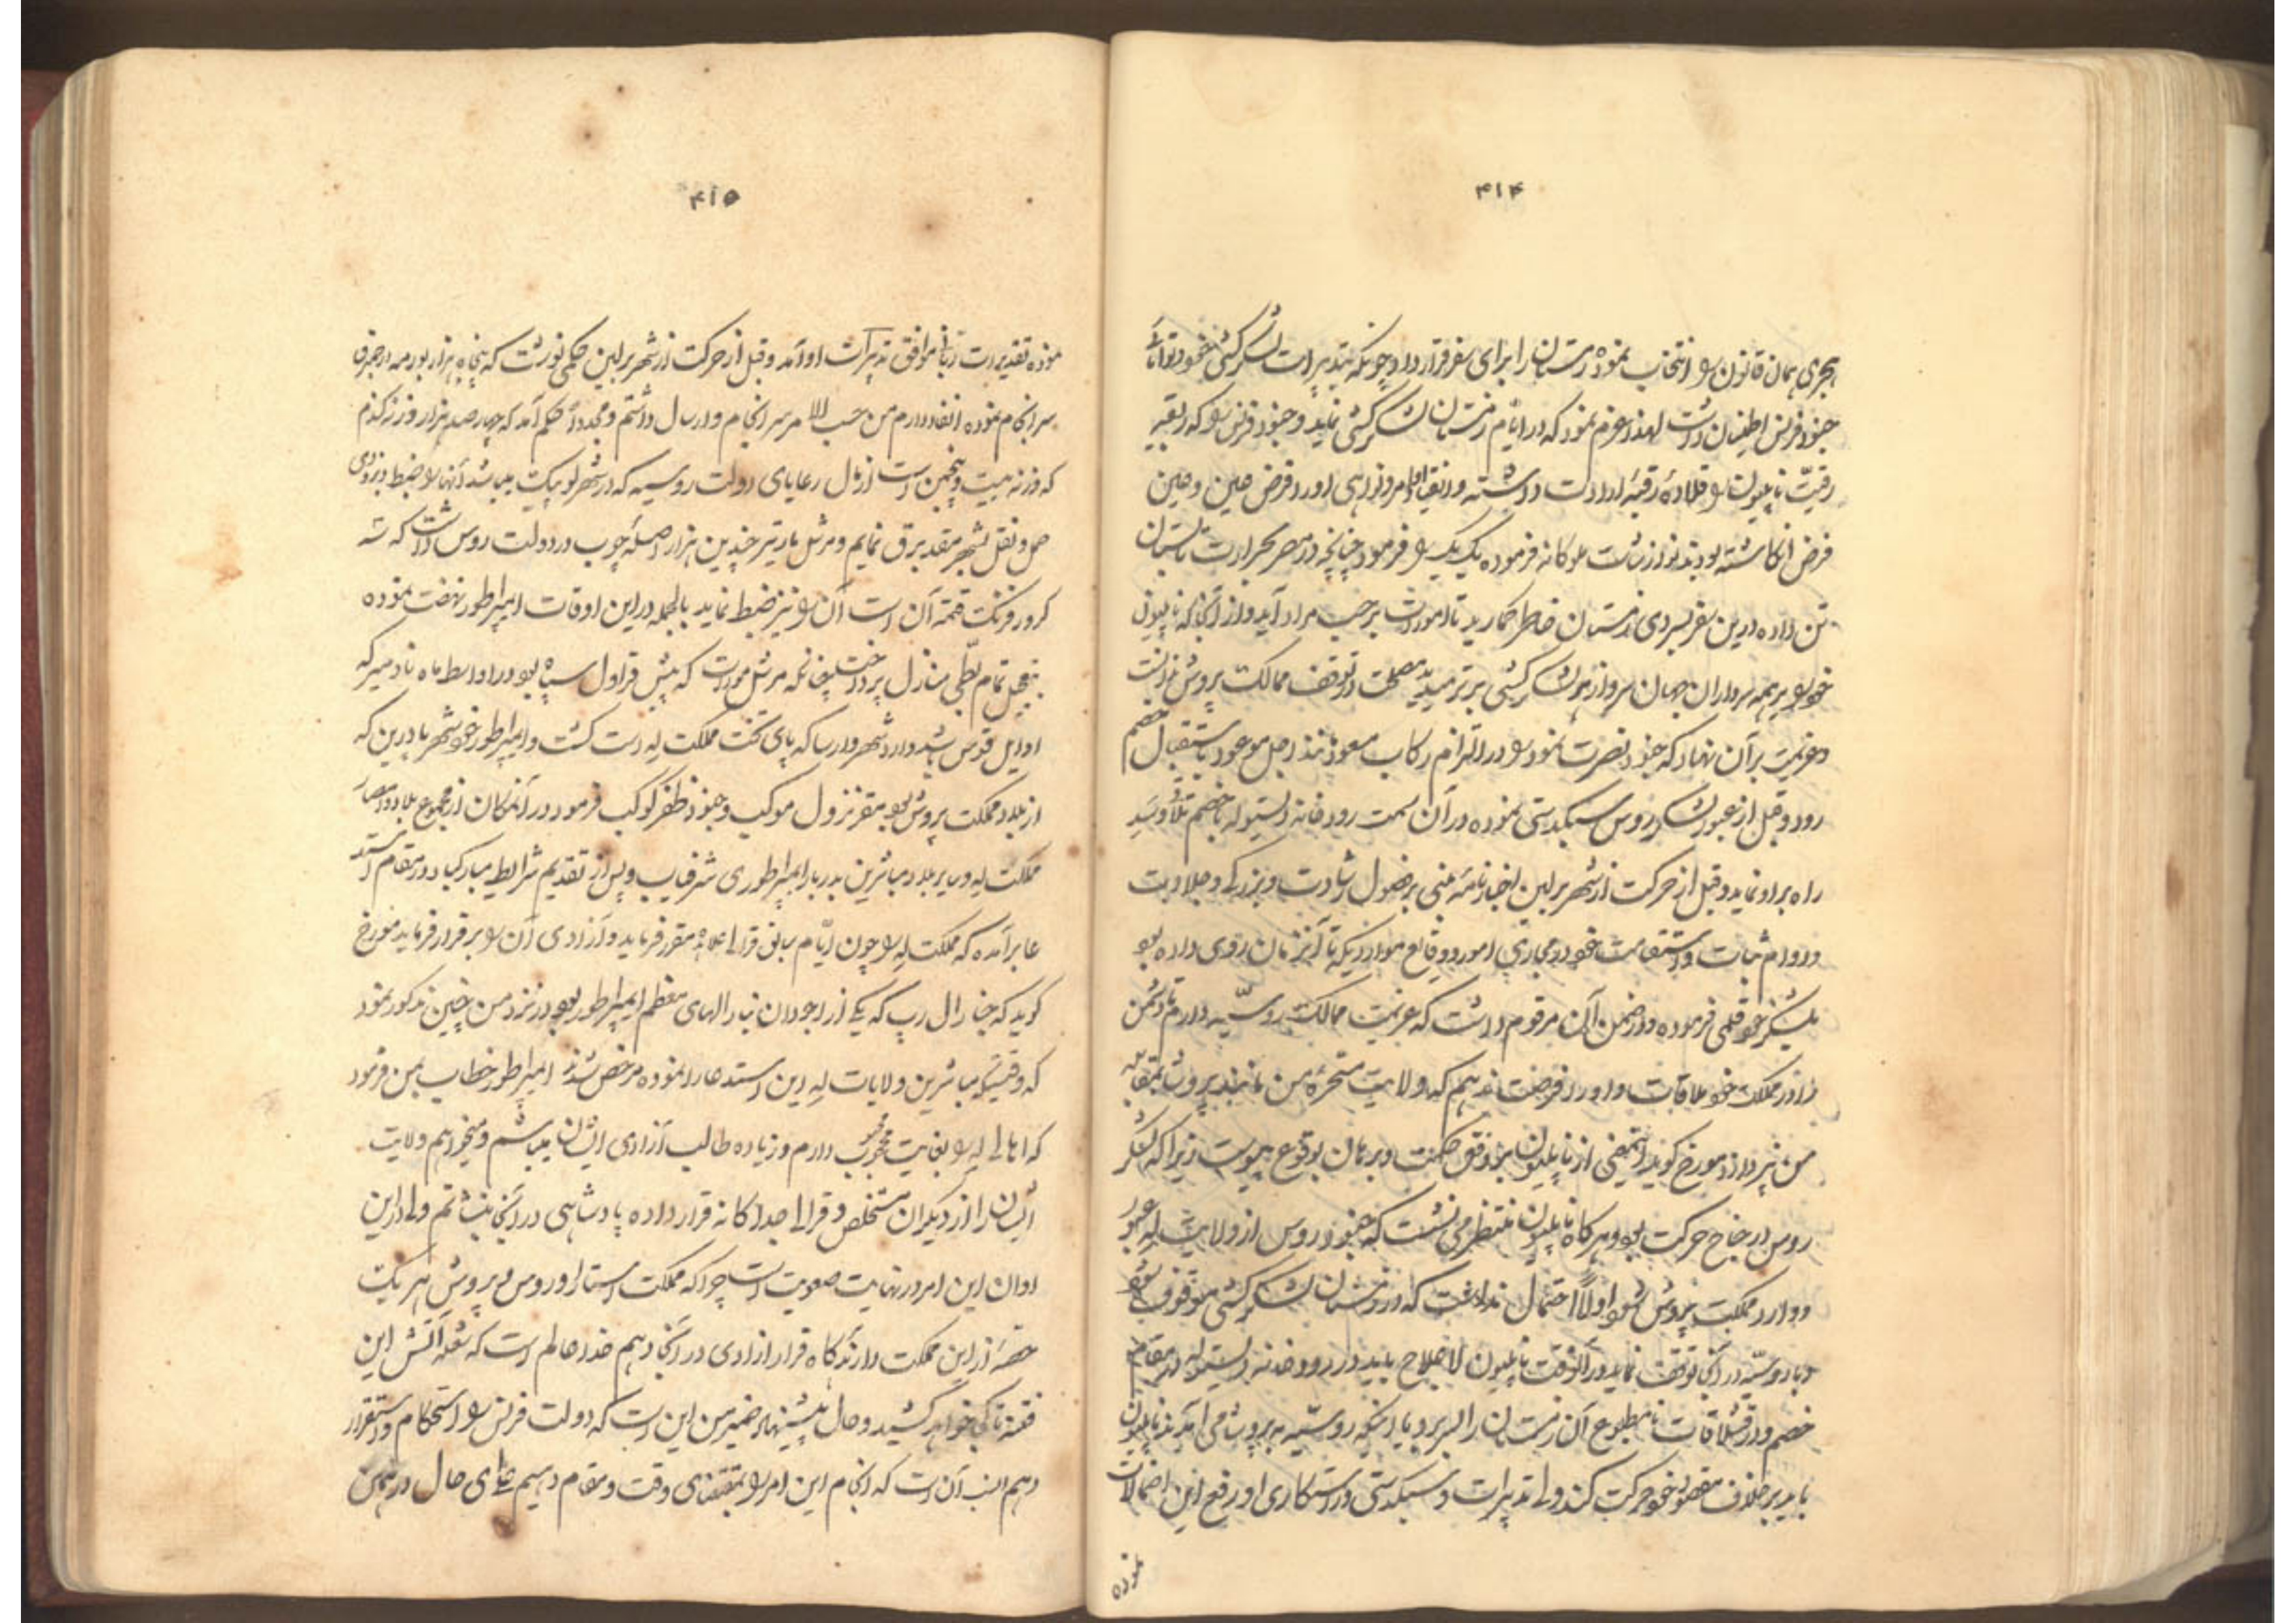 ۴۱۴
هجری همان قانون را انتخاب نموده زمستان را برای سفر قرار داد چونکه بتدبیرات لشکرکشی خود و توانائی
جنود فرنس اطمینان داشت لهذا عزم نمود که در ایام زمستان لشکرکشی نماید و جنود فرنس را که ربقهٔ
رقیّت ناپلیون را قلادهٔ رقبهٔ ارادت داشته و انقیاد اوامر و نواهی او را فرض عین و عین
فرض انگاشته بودند نوازشات ملوکانه فرموده یک یک را فرمود چنانچه در مصر بحرارت تابستان
تن داده درین سفر بسردی زمستان خاطر گمارید تا امورات برحسب مراد آید و از آنجا که ناپلیون
خود را بر همه سرداران جهان سرو از هر لشکرکشی برتر میدید مصلحت در توقف ممالک پروش ندانست
و عزیمت بر آن نهاد که جنود نصرت نمود را در التزام رکاب مسعود نزد اجل موعود باستقبال خصم
رود و قبل از عبور لشکر روس سبکدستی نموده در آن سمت رودخانه ویستوله با خصم تلاقی و سدّ
راه بر او نماید و قبل از حرکت از شهر برلین اخبارنامه مبنی بر فصول رشادت و بزرگی و جلادت
و دوام ثبات و استقامت خود در مجاری امور و وقایع مواردیکه تا آنزمان روی داده بود
بلشکر خود قلمی فرموده و در ضمن آن مرقوم داشت که عزیمت ممالک روسیّه دارم تا دشمن
را در مملکت خود ملاقات و او را فرصت ندهم که ولایت مسخرهٔ من مانند پروش بمقابله
من پردازد مورخ گوید اینمعنی از ناپلیون بر وفق حکمت و برهان بوقوع پیوست زیرا که لشکر
روس در جناح حرکت بود و هرگاه ناپلیون منتظر می نشست که جنود روس از ولایت له عبور
و وارد مملکت پروش شود اولاً احتمال نداشت که در زمستان لشکرکشی موقوف شود
و با روسیّه در آنجا توقف نماید در آنوقت ناپلیون لاعلاج باید در رودخانه ویستوله در مقام
خصم و در قشلاقات نامطبوع آن زمستان را بسر برد یا اینکه روسیّه به پروش می آمدند ناپلیون
باید بر خلاف مقصود خود حرکت کند ولی تدبیرات و سبکدستی و درستکاری او رفع این احتمالات
نموده
۴۱۵
نموده تقدیرات ربانی موافق تدبیرات او آمد و قبل از حرکت از شهر برلین حکمی نوشت که پنجاه هزار
سرانجام نموده انفاد دارم من حسب الامر سرانجام و ارسال داشتم و مجدداً حکم آمد که چهار صد هزار وزنه گندم
که وزنه بیست و پنجمن است از مال رعایای دولت روسیه که در شهر لوبیک میباشد آنها را ضبط و بزودی
حمل و نقل بشهر مقدبرق نمایم و مرشل مارتیر چندین هزار اصله چوب در دولت روس داشت که سه
کرور فرنک قیمة آن است آن را نیز ضبط نماید بالجمله در این اوقات ایمپراطور نهضت نموده
بتعجیل تمام بطیّ منازل پرداخت چنانکه مرشل مورات که پیش قراول سپاه بود در اواسط ماه نادمبر که
اوایل قوس باشد وارد شهر وارسا که پای تخت مملکت له است گشت و ایمپراطور خود شهر بادرین که
از بلاد مملکت پروش بود مقر نزول موکب و جنود ظفر کوکب فرمود در آنمکان از مجموع بلاد و امصار
مملکت له و سایر بلاد مباشرین بدربار ایمپراطوری شرفیاب و پس از تقدیم شرایط مبارکباد در مقام استد
عا برآمده که مملکت له را چون ایّام سابق قرالی علاحده مقرر فرماید و آزادی آن را برقرار فرماید مورخ
گوید که جنارال رپ که یکی از اجودان جنارالهای معظم ایمپراطور بود در نزد من چنین مذکور نمود
که وقتیکه مباشرین ولایات له این استدعا را نموده مرخص شدند ایمپراطور خطاب بمن فرمود
که اهالی له را بغایت محبوب دارم و زیاده طالب آزادی ایشان میباشم و میخواهم ولایت
ایشان را از دیگران مستخلص و قرالی جداگانه قرار داده پادشاهی در آنجا بنشانم ولی در این
اوان این امر در نهایت صعوبت است چرا که مملکت اوستاریا و روس و پروش هر یک
حصهٔ از این مملکت دارند گاه قرار ازادی در آنجا دهم خدا عالم است که شعله آتش این
فتنه تا کجا خواهد کشید و حال پیشنهاد ضمیر من این است که دولت فرنس را استحکام و استقرار
دهم انسب آن است که انجام این امر را بمقتضای وقت و مقام دهیم علی ای حال در همین